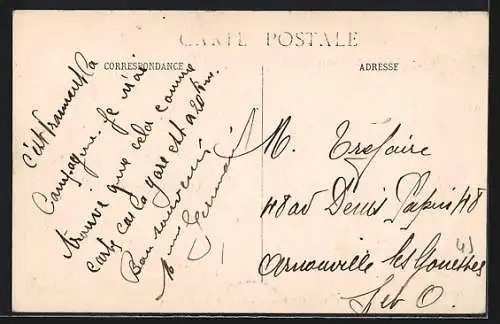 CARTE POSTALE
CORRESPONDANCE
ADRESSE
c'est vraiment la
Campagne. Je n'ai
trouvé que cela comme
carte car la gare est a 20 km.
Bon souvenir
Mme
M. Tréfaire
48 av Denis Papin 48
Arnouville les Gonesses
S et O.